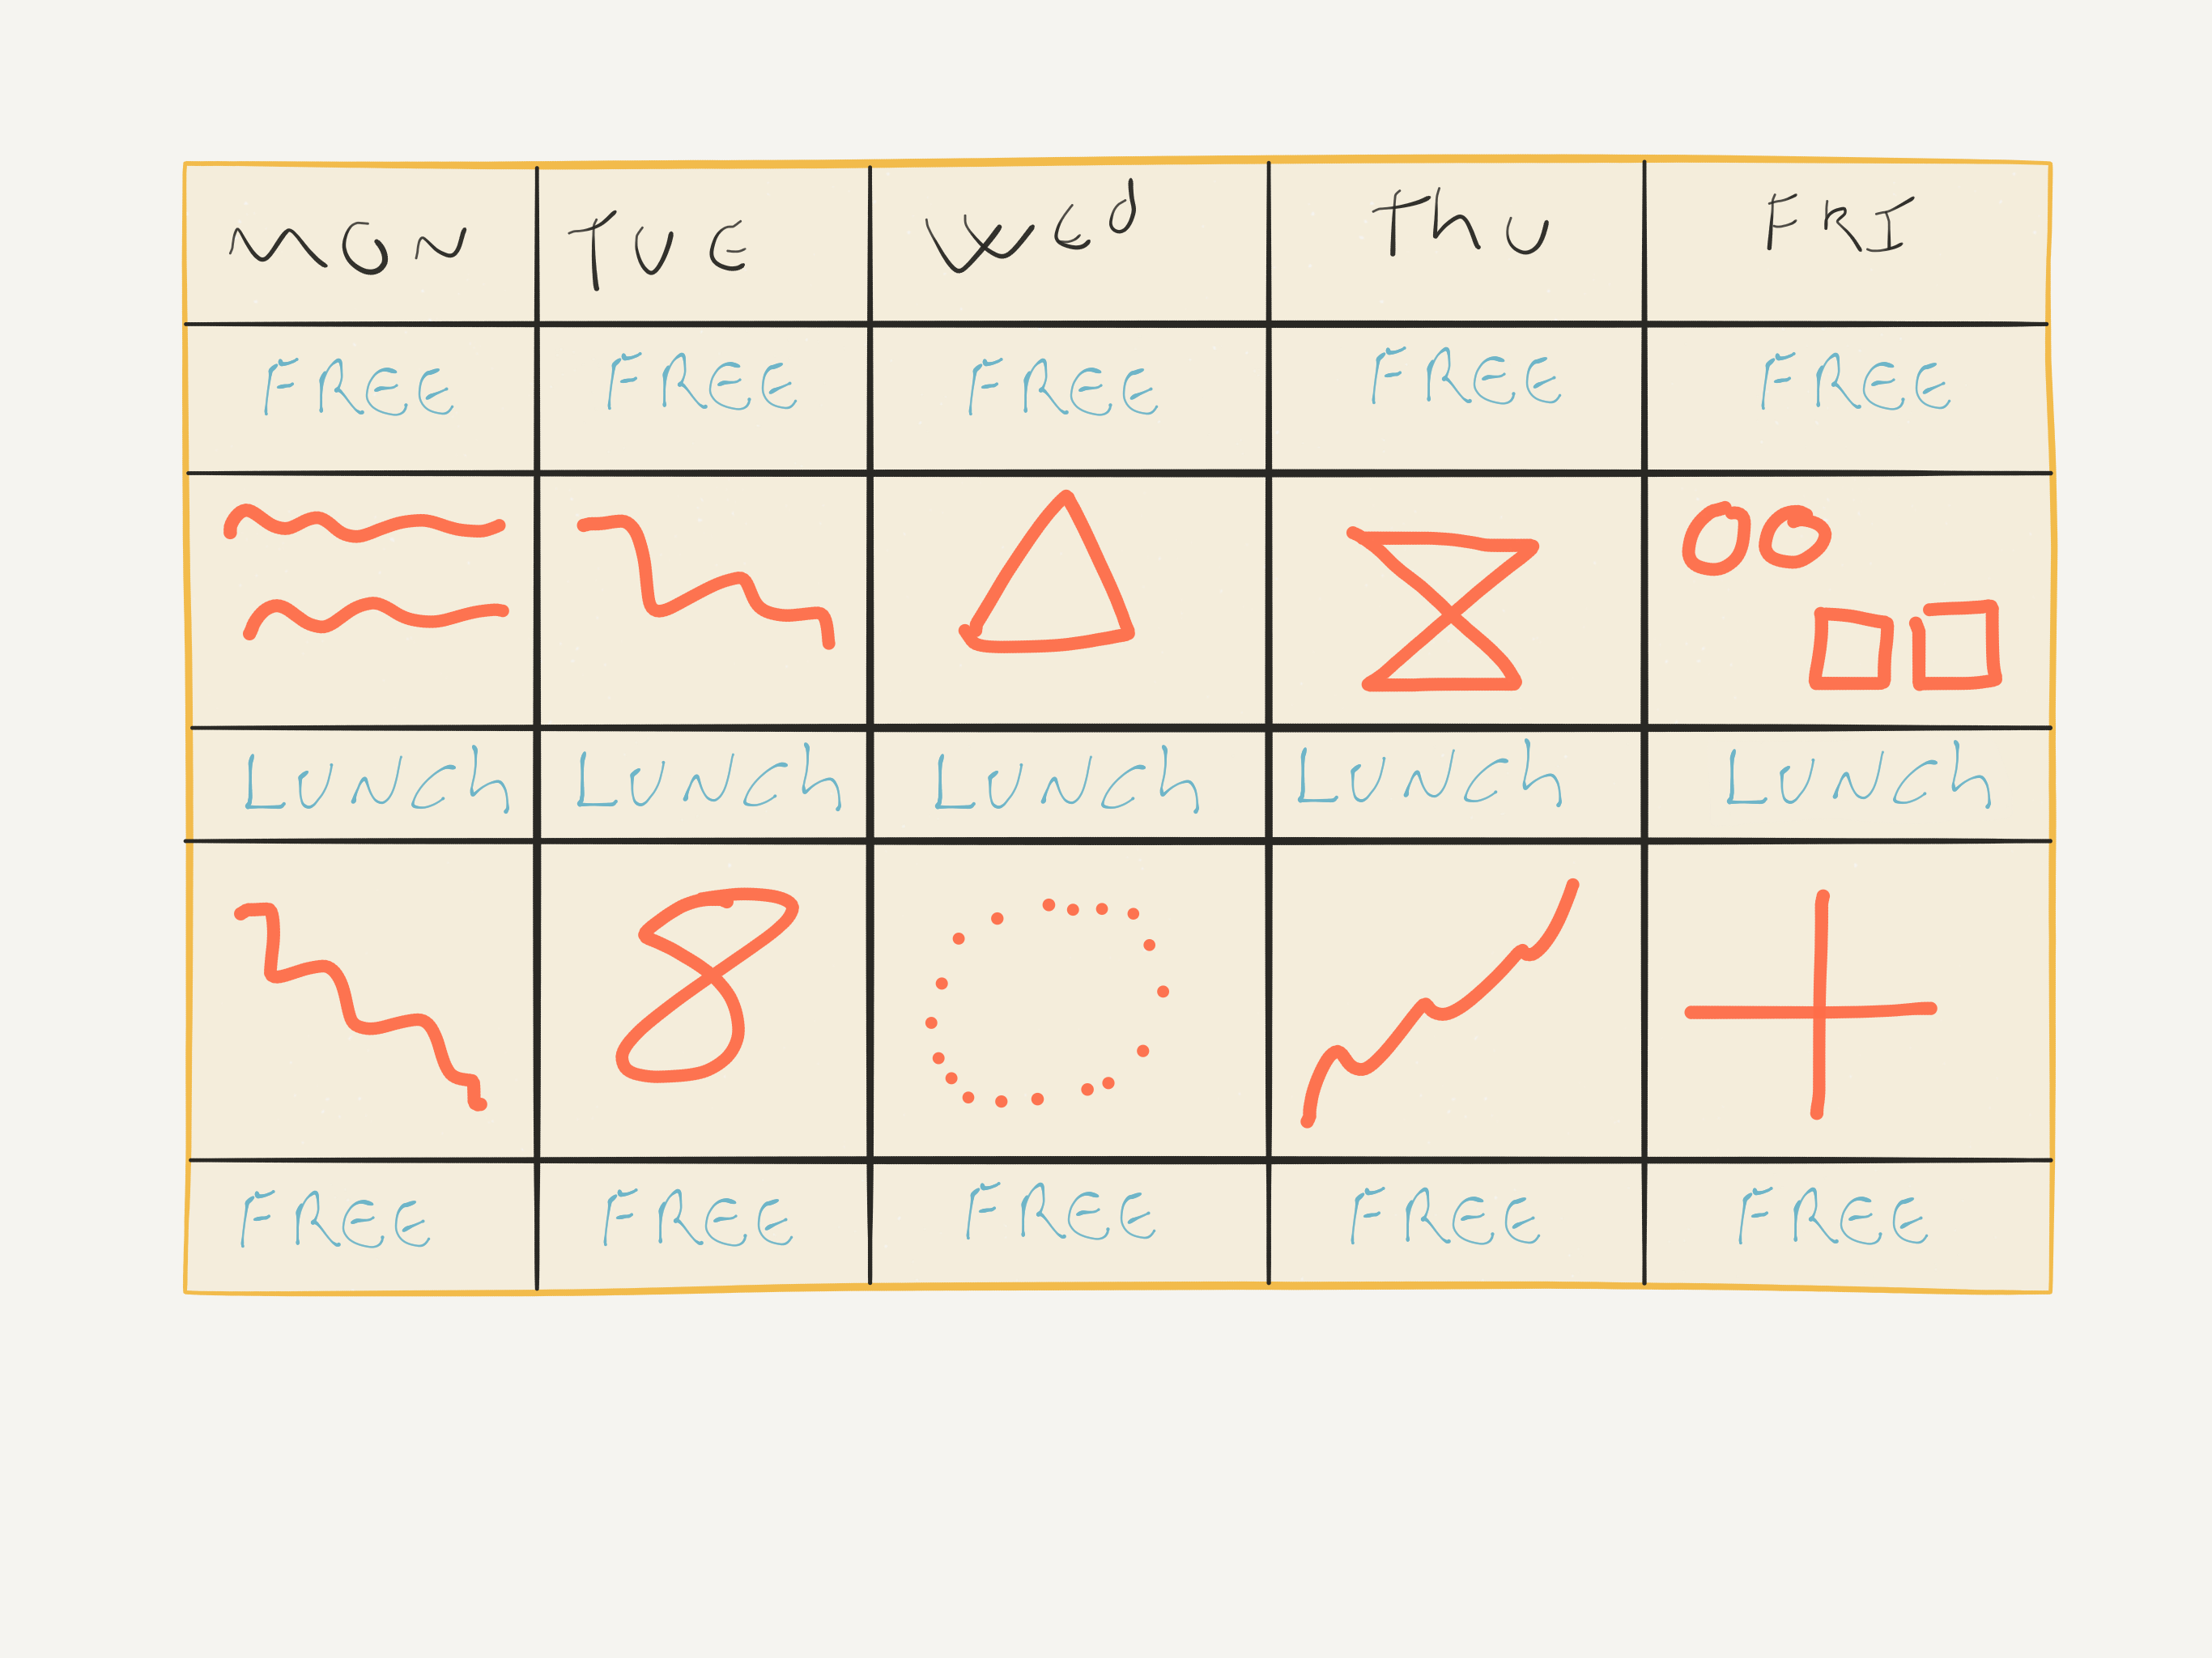 Mon Tue Wed Thu FRI
FREE FREE FREE FREE FREE
LUNCh LUNCh LUNCh LUNCh LUNCh
8
FREE FREE FREE FREE FREE